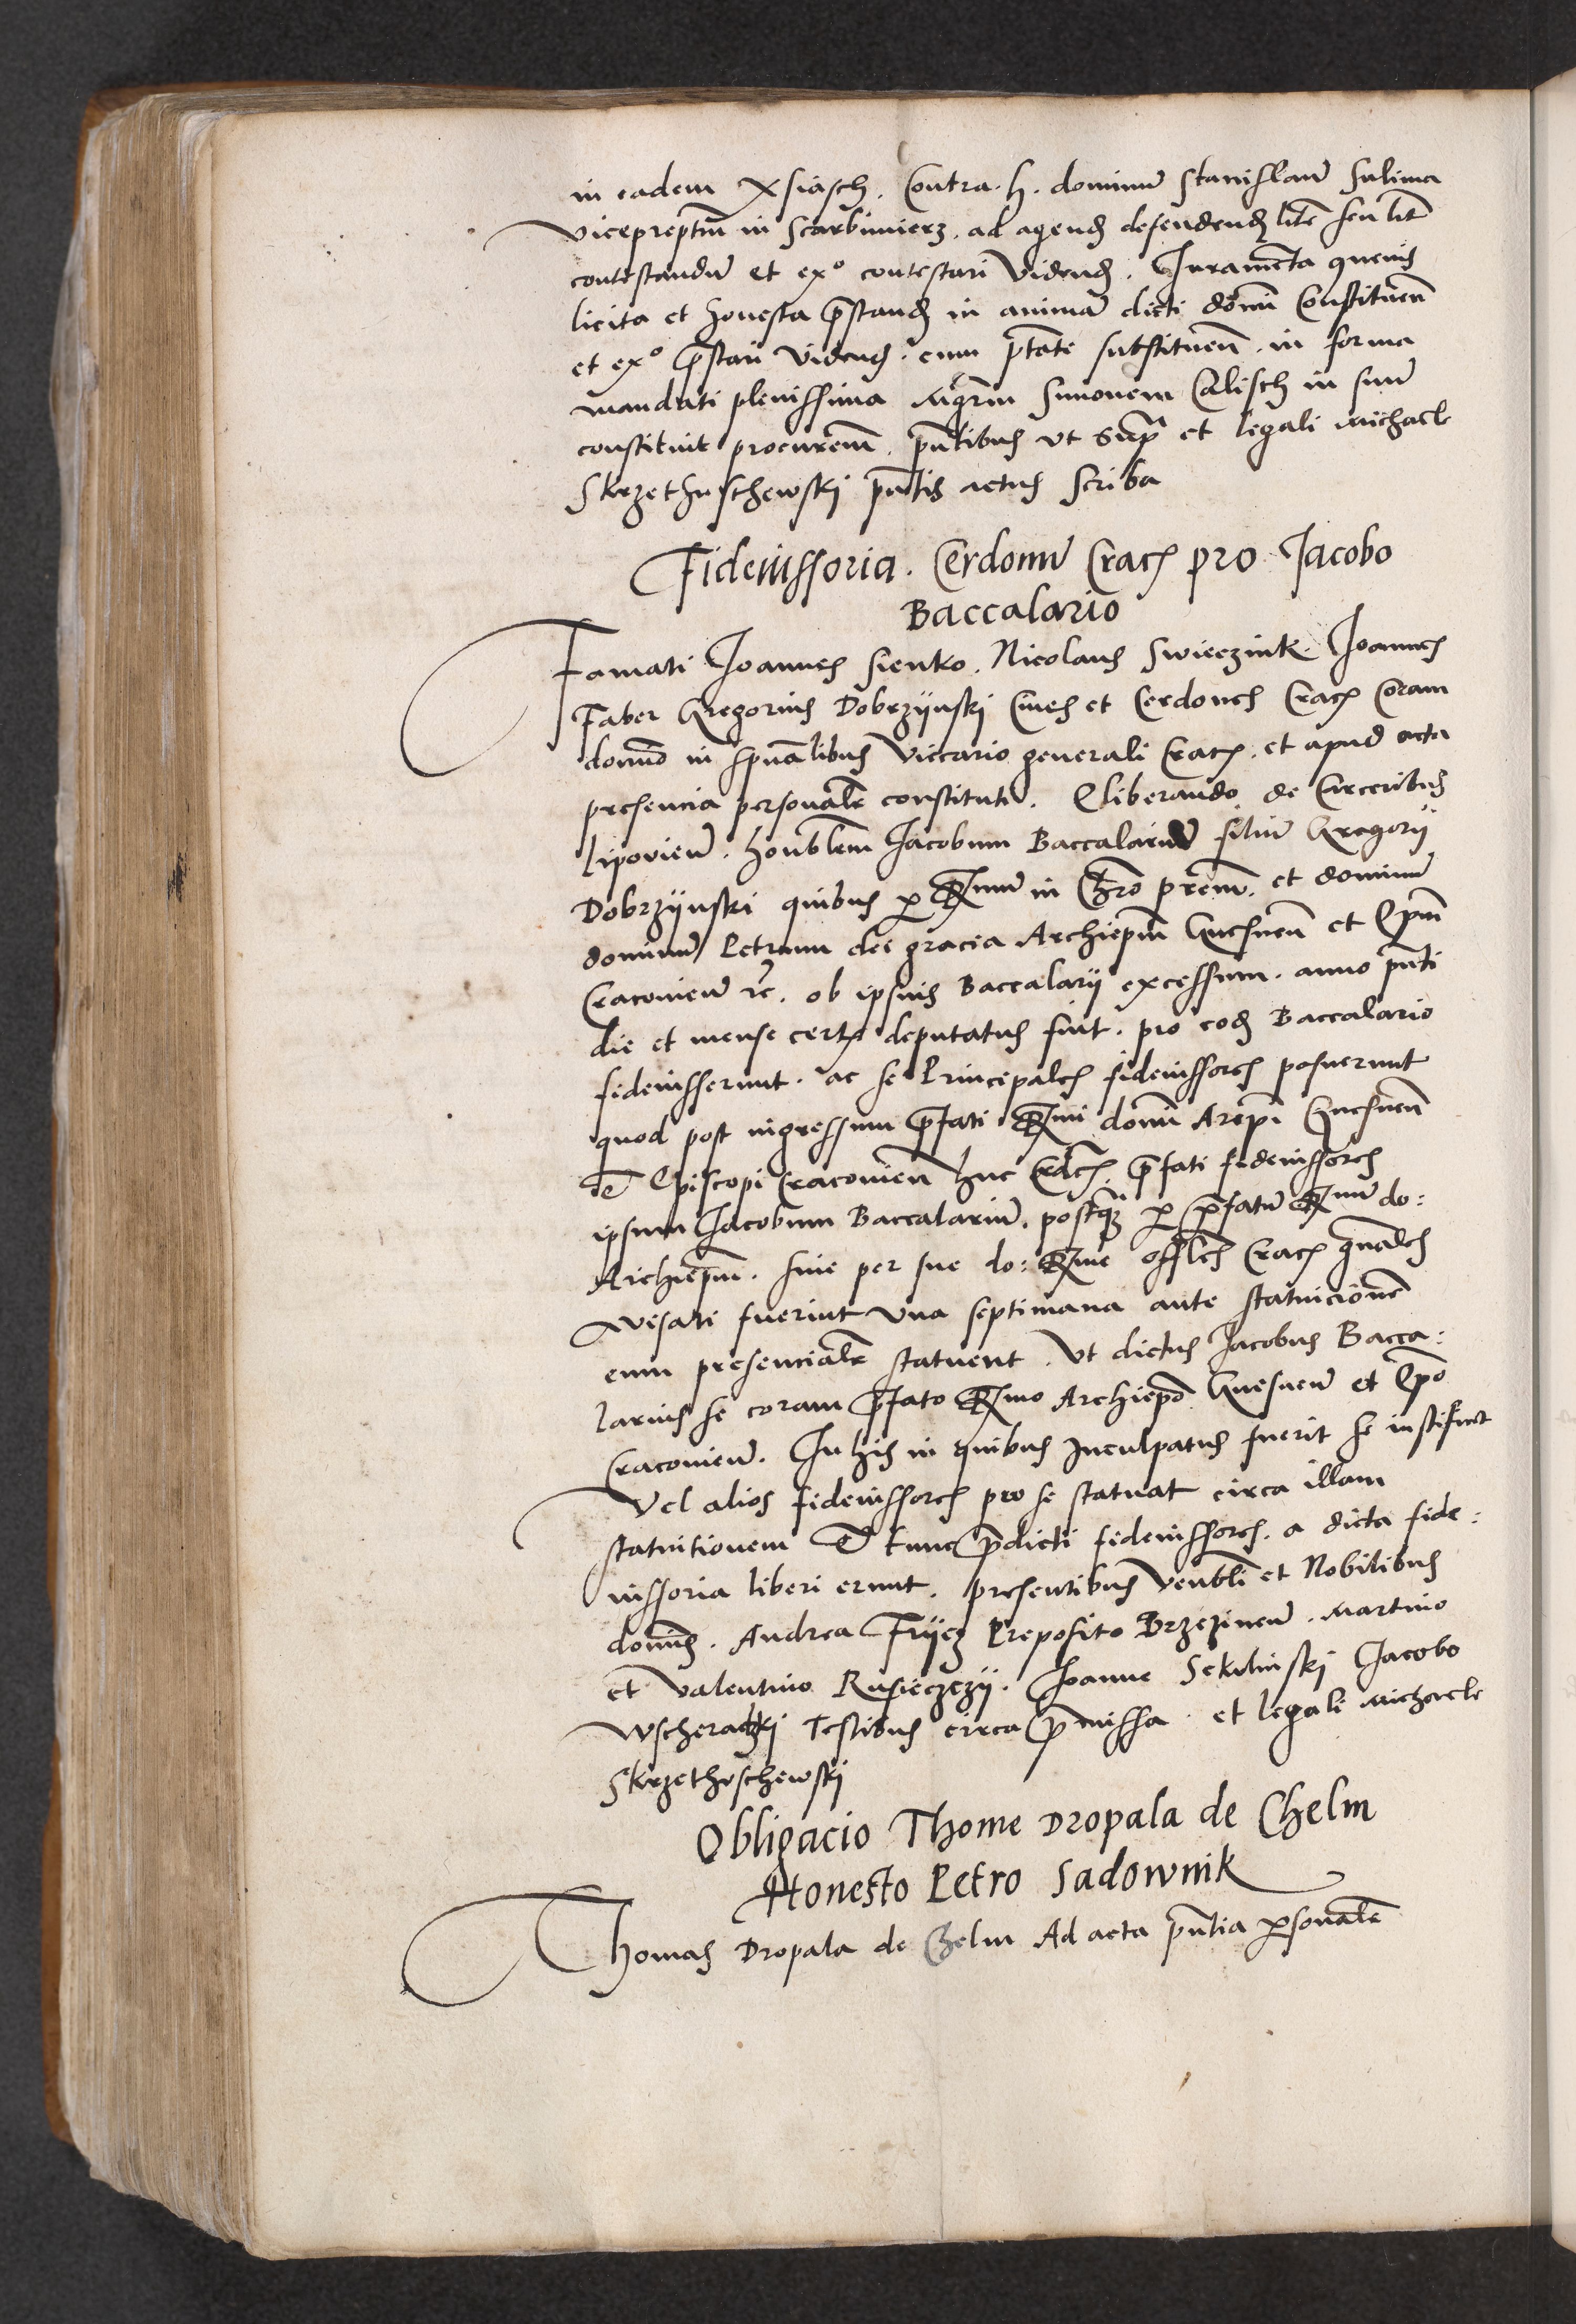 in eadem Xsiasch. Contra. h. dominū Stanislaū Sulima
viceprept̄m in Scarbimierz. ad agend̄ defendend̄ litē seu litē
contestandū et exº contestari videnđ. Juramēta quevis
licita et honesta p̄stanđ in animā dicti domī Constituen̄
et exº p̄stari videnđ. cum p̄tate substituen̄. in forma
mandati plenissima Mgr̄m Simonem Calisch in suū
constituit procurem̄. pn̄tibus ut sup̄ et legali Michaele
Skrzethuschewskj pn̄tis actus scriba
Fideiussoria. Cerdonū Crac̄ pro Jacobo
Baccalario
Famati Joannes Sienko. Nicolaus Swieczink. Joannes
Faber Gregorius Dobrzÿnskj Cives et Cerdones Crac̄ Coram
domīo in spūalibus Viccario generali Crac̄. et apud acta
presencia personalr̄ constituti. Eliberando de Carceribus
lipovien̄. honblēm Jacobum Baccalariū filiū Gregorÿ
Dobrzÿnski quibus p R̄mū in Chr̄o prēm. et dominū
dominū Petrum dei gracia Archiepm̄ Gnesnen̄ et Epm̄
Cracovien̄ ꝛc̄. ob ipsius Baccalarÿ excessum. anno pn̄ti
die et mense certꝭ deputatus fuit. pro eođ Baccalario
fideiusserunt. ac se Principales fideiussores posuerunt
quod post ingressum p̄fati R̄mi domī Arepī Gnesnen̄
et Episcopi Cracovien̄ huc Crac̄. p̄fati fideiussores
ipsum Jacobum Baccalariū. postq̄ p p̄fatū R̄mū do:
Archiepm̄. sive per sue do: R̄me offles Crac̄ gn̄ales
avisati fuerint una septimana ante statuicionē
eum presencialr̄ statuent. Ut dictus Jacobus Bacca:
larius se coram p̄fato R̄mo Archiepō Gnesnen̄ et Epō
Cracovien̄. In his in quibus Inculpatus fuerit se instificet
Vel alios fideiussores pro se statuat circa illam
statuitionem Et tunc p̄dicti fideiussores. a dicta fide:
iussoria liberi erunt. presentibus Venbli et Nobilibus
domīs. Andrea Frÿcz Preposito Brzezinen̄. Martino
et Valentino Rusieczczÿ. Joanne Sekulinskj Jacobo
Wscheradzkj Testibus circa p̄missa. et legali Michaele
Skrzethoschewskj
Obligacio Thome Dropala de Chelm
Honesto Petro Sadownik
Thomas Dropala de Chelm Ad acta pn̄tia psonalr̄